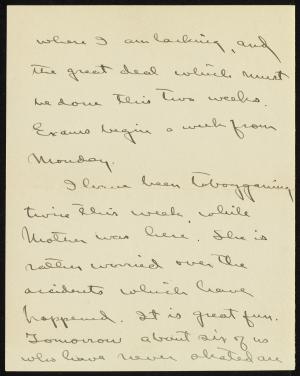 where I am lacking, and
the great deal which must
be done this two weeks.
Exams begin a week from
Monday.
I have been tobogganing
twice this week, while
Mother was here. She is
rather worried over the
accidents which have
happened. It is great fun.
Tomorrow about six of us
who have never skated are